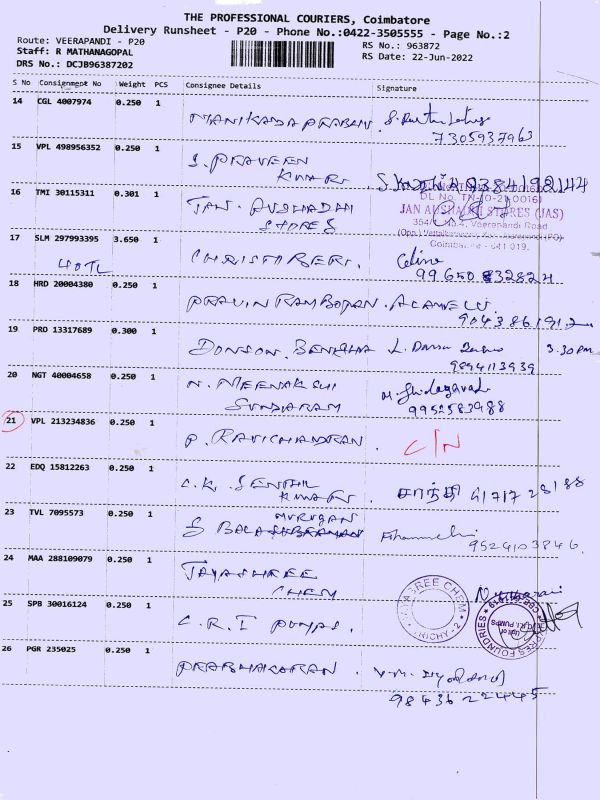 THE PROFESSIONAL COURIERS, Coimbatore
Delivery Runsheet - P20 - Phone No.:0422-3505555 - Page No.:2
Route: VEERAPANDI - P20
Staff: R MATHANAGOPAL
DRS No.: DCJB96387202
RS No.: 963872
RS Date: 22-Jun-2022
S No Consignment No Weight PCS Consignee Details Signature
14 CGL 4007974 0.250 1 MANIKANDA PRABHU
7305937963
15 VPL 498956352 0.250 1 S. PRAVEEN
KUMAR 9384192144
16 TMI 30115311 0.301 1 JAN AUSHADHI
STORES
JAN AUSHADHI STORES (JAS)
Veerapandi Road
Coimbatore - 641 019.
17 SLM 297993395 3.650 1 CHRISTOBERT. Celine
HOTL 99650832824
18 HRD 20004380 0.250 1 PRAVIN RAMBOPAN. ALAMELU.
9043861912
19 PRO 13317689 0.300 1 DONSON. 3.30pm
9894113939
20 NGT 40004658 0.250 1 N. MEENAKSHI
SUNDARAM 9952583988
21 VPL 213234836 0.250 1 P. RAVICHANDRAN. C/N
22 EDQ 15812263 0.250 1 C.K. SENTHIL
KUMAR சாந்தி
23 TVL 7095573 0.250 1 S BALA MURUGAN
9524103846.
24 MAA 288109079 0.250 1 JAYASHREE
CHEM
JAYASREE CHEM
TRICHY-2
25 SPB 30016124 0.250 1 C.R.I PUMPS.
26 PGR 235025 0.250 1 PRABHAKARAN. V.M.
9843622445